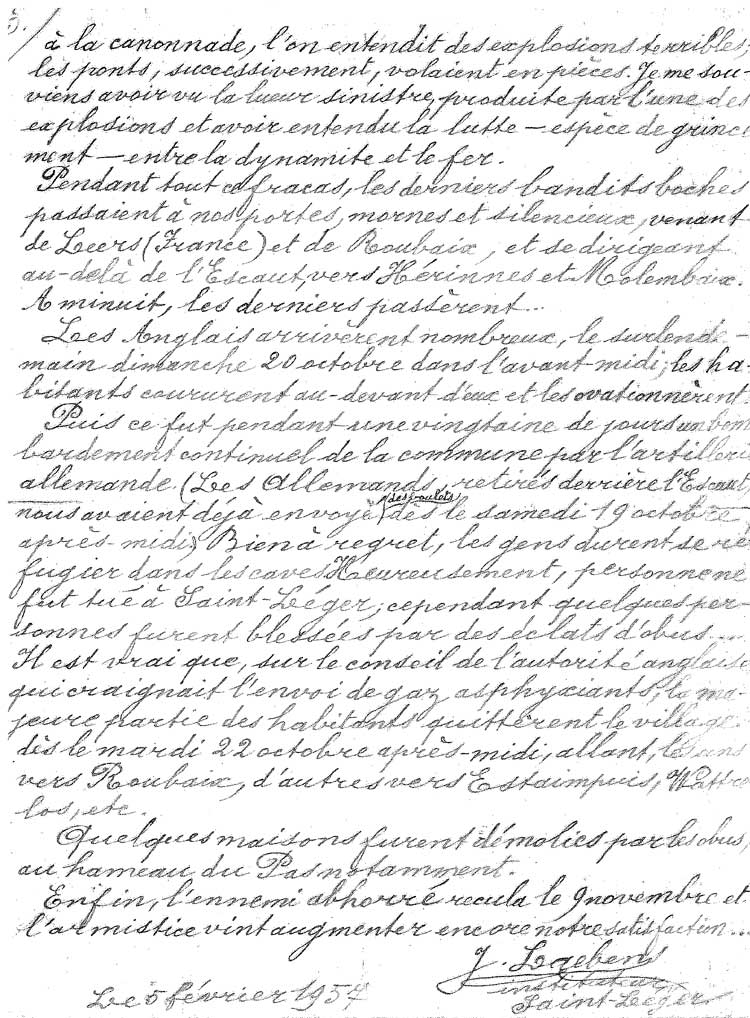 5./
à la canonnade, l'on entendit des explosions terribles;
les ponts, successivement, volaient en pièces. Je me sou-
viens avoir vu la lueur sinistre, produite par l'une des
explosions et avoir entendu la lutte — espèce de grince
ment — entre la dynamite et le fer.
Pendant tout ce fracas, les derniers bandits boches
passaient à nos portes, mornes et silencieux, venant
de Leers (France) et de Roubaix, et se dirigeant
au-delà de l'Escaut, vers Hérinnes et Molembaix.
A minuit, les derniers passèrent...
Les Anglais arrivèrent nombreux, le surlende-
main dimanche 20 octobre dans l'avant-midi; les ha-
bitants coururent au-devant d'eux et les ovationnèrent.
Puis ce fut pendant une vingtaine de jours un bom
bardement continuel de la commune par l'artillerie
allemande. (Les Allemands, retirés derrière l'Escaut,
nous avaient déjà envoyé des poulets dès le samedi 19 octobre,
après-midi). Bien à regret, les gens durent se ré
fugier dans les caves. Heureusement, personne ne
fut tué à Saint-Léger; cependant quelques per-
sonnes furent blessées par des éclats d'obus....
Il est vrai que, sur le conseil de l'autorité anglaise
qui craignait l'envoi de gaz asphyxiants, la ma-
jeure partie des habitants quittèrent le village
dès le mardi 22 octobre après-midi, allant, les uns
vers Roubaix, d'autres vers Estaimpuis, Wattre
los, etc.
Quelques maisons furent démolies par les obus,
au hameau du Pas notamment.
Enfin, l'ennemi abhorré recula le 9 novembre et
l'armistice vint augmenter encore notre satisfaction...
J.
instituteur
Saint-Léger
Le 5 février 1957